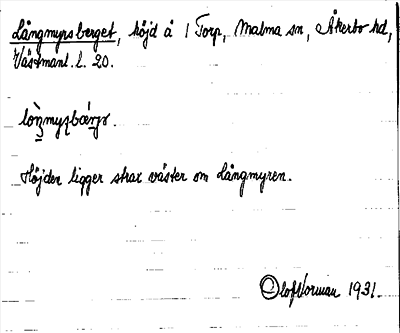 Långmyrsberget, höjd å 1 Torp, Malma sn, Åkerbo hd,
Västmanl. l. 20.
Höjden ligger strax väster om Långmyren.
Olof Norman 1931.